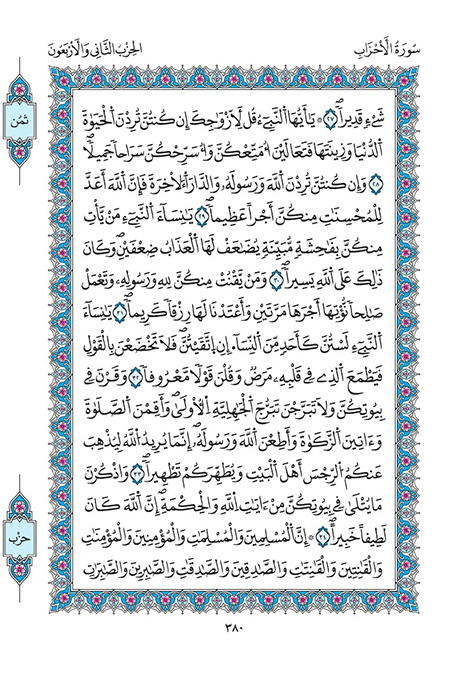 سُورَةُ الْأَحْزَابِ
الحِزْبُ الثَّانِي وَالْأَرْبَعُونَ
شَيْءٖ قَدِيراٗۖ ٢٧ ۞ يَٰٓأَيُّهَا اَ۬لنَّبِيٓءُ قُل لِّأَزْوَٰجِكَ إِن كُنتُنَّ تُرِدْنَ اَ۬لْحَيَوٰةَ
اَ۬لدُّنْيَا وَزِينَتَهَا فَتَعَالَيْنَ أُمَتِّعْكُنَّ وَأُسَرِّحْكُنَّ سَرَاحاٗ جَمِيلاٗۖ
٢٨ وَإِن كُنتُنَّ تُرِدْنَ اَ۬للَّهَ وَرَسُولَهُۥ وَالدَّارَ اَ۬لَاخِرَةَ فَإِنَّ اَ۬للَّهَ أَعَدَّ
لِلْمُحْسِنَٰتِ مِنكُنَّ أَجْراً عَظِيماٗۖ ٢٩ يَٰنِسَآءَ اَ۬لنَّبِيٓءِ مَنْ يَّاتِ
مِنكُنَّ بِفَٰحِشَةٖ مُّبَيِّنَةٖ يُضَٰعَفْ لَهَا اَ۬لْعَذَابُ ضِعْفَيْنِۖ وَكَانَ
ذَٰلِكَ عَلَى اَ۬للَّهِ يَسِيراٗۖ ٣٠ وَمَنْ يَّقْنُتْ مِنكُنَّ لِلهِ وَرَسُولِهِۦ وَتَعْمَلْ
صَٰلِحاٗ نُّوتِهَآ أَجْرَهَا مَرَّتَيْنِ وَأَعْتَدْنَا لَهَا رِزْقاٗ كَرِيماٗۖ ٣١ يَٰنِسَآءَ
اَ۬لنَّبِيٓءِ لَسْتُنَّ كَأَحَدٖ مِّنَ اَ۬لنِّسَآءِ اِنِ اِ۪تَّقَيْتُنَّۖ فَلَا تَخْضَعْنَ بِالْقَوْلِ
فَيَطْمَعَ اَ۬لذِے فِے قَلْبِهِۦ مَرَضٞ وَقُلْنَ قَوْلاٗ مَّعْرُوفاٗۖ ٣٢ وَقَرْنَ فِے
بُيُوتِكُنَّ وَلَا تَبَرَّجْنَ تَبَرُّجَ اَ۬لْجَٰهِلِيَّةِ اِ۬لُاولَيٰۖ وَأَقِمْنَ اَ۬لصَّلَوٰةَ
وَءَاتِينَ اَ۬لزَّكَوٰةَ وَأَطِعْنَ اَ۬للَّهَ وَرَسُولَهُۥٓۖ إِنَّمَا يُرِيدُ اُ۬للَّهُ لِيُذْهِبَ
عَنكُمُ اُ۬لرِّجْسَ أَهْلَ اَ۬لْبَيْتِ وَيُطَهِّرَكُمْ تَطْهِيراٗۖ ٣٣ وَاذْكُرْنَ
مَا يُتْلَيٰ فِے بُيُوتِكُنَّ مِنَ اٰيَٰتِ اِ۬للَّهِ وَالْحِكْمَةِۖ إِنَّ اَ۬للَّهَ كَانَ
لَطِيفاً خَبِيراًۖ ٣٤ ۞ اِنَّ اَ۬لْمُسْلِمِينَ وَالْمُسْلِمَٰتِ وَالْمُومِنِينَ وَالْمُومِنَٰتِ
وَالْقَٰنِتِينَ وَالْقَٰنِتَٰتِ وَالصَّٰدِقِينَ وَالصَّٰدِقَٰتِ وَالصَّٰبِرِينَ وَالصَّٰبِرَٰتِ
ثُمُن
حِزْب
٣٨٠